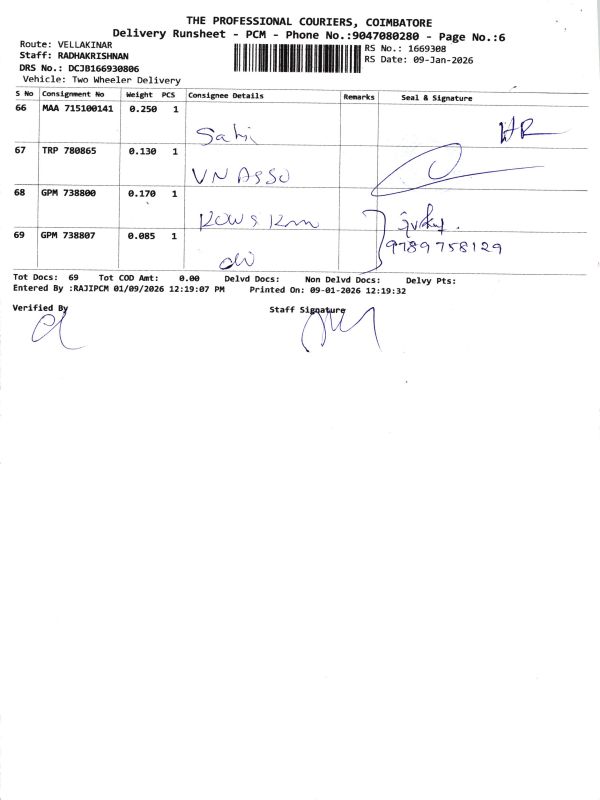 THE PROFESSIONAL COURIERS, COIMBATORE
Delivery Runsheet - PCM - Phone No.:9047080280 - Page No.:6
Route: VELLAKINAR
Staff: RADHAKRISHNAN
DRS No.: DCJB166930806
Vehicle: Two Wheeler Delivery
RS No.: 1669308
RS Date: 09-Jan-2026
S No Consignment No Weight PCS Consignee Details Remarks Seal & Signature
66 MAA 715100141 0.250 1
HR
67 TRP 780865 0.130 1
VN ASSO
68 GPM 738800 0.170 1
69 GPM 738807 0.085 1
9789758129
Tot Docs: 69 Tot COD Amt: 0.00 Delvd Docs: Non Delvd Docs: Delvy Pts:
Entered By :RAJIPCM 01/09/2026 12:19:07 PM Printed On: 09-01-2026 12:19:32
Verified By Staff Signature